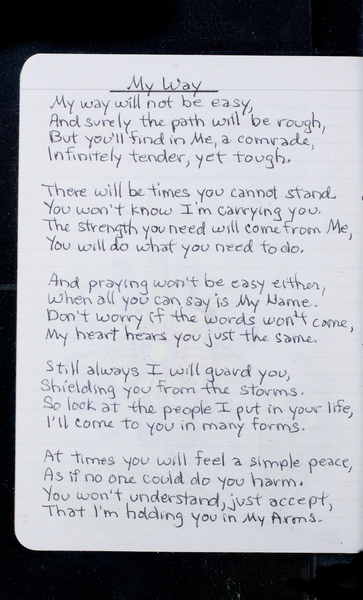 My Way
My way will not be easy,
And surely the path will be rough,
But you'll find in Me, a comrade,
Infinitely tender, yet tough.
There will be times you cannot stand.
You won't know I'm carrying you.
The strength you need will come from Me,
You will do what you need to do.
And praying won't be easy either,
When all you can say is My Name.
Don't worry if the words won't come,
My heart hears you just the same.
Still always I will guard you,
Shielding you from the storms.
So look at the people I put in your life,
I'll come to you in many forms.
At times you will feel a simple peace,
As if no one could do you harm.
You won't understand, just accept,
That I'm holding you in My Arms.